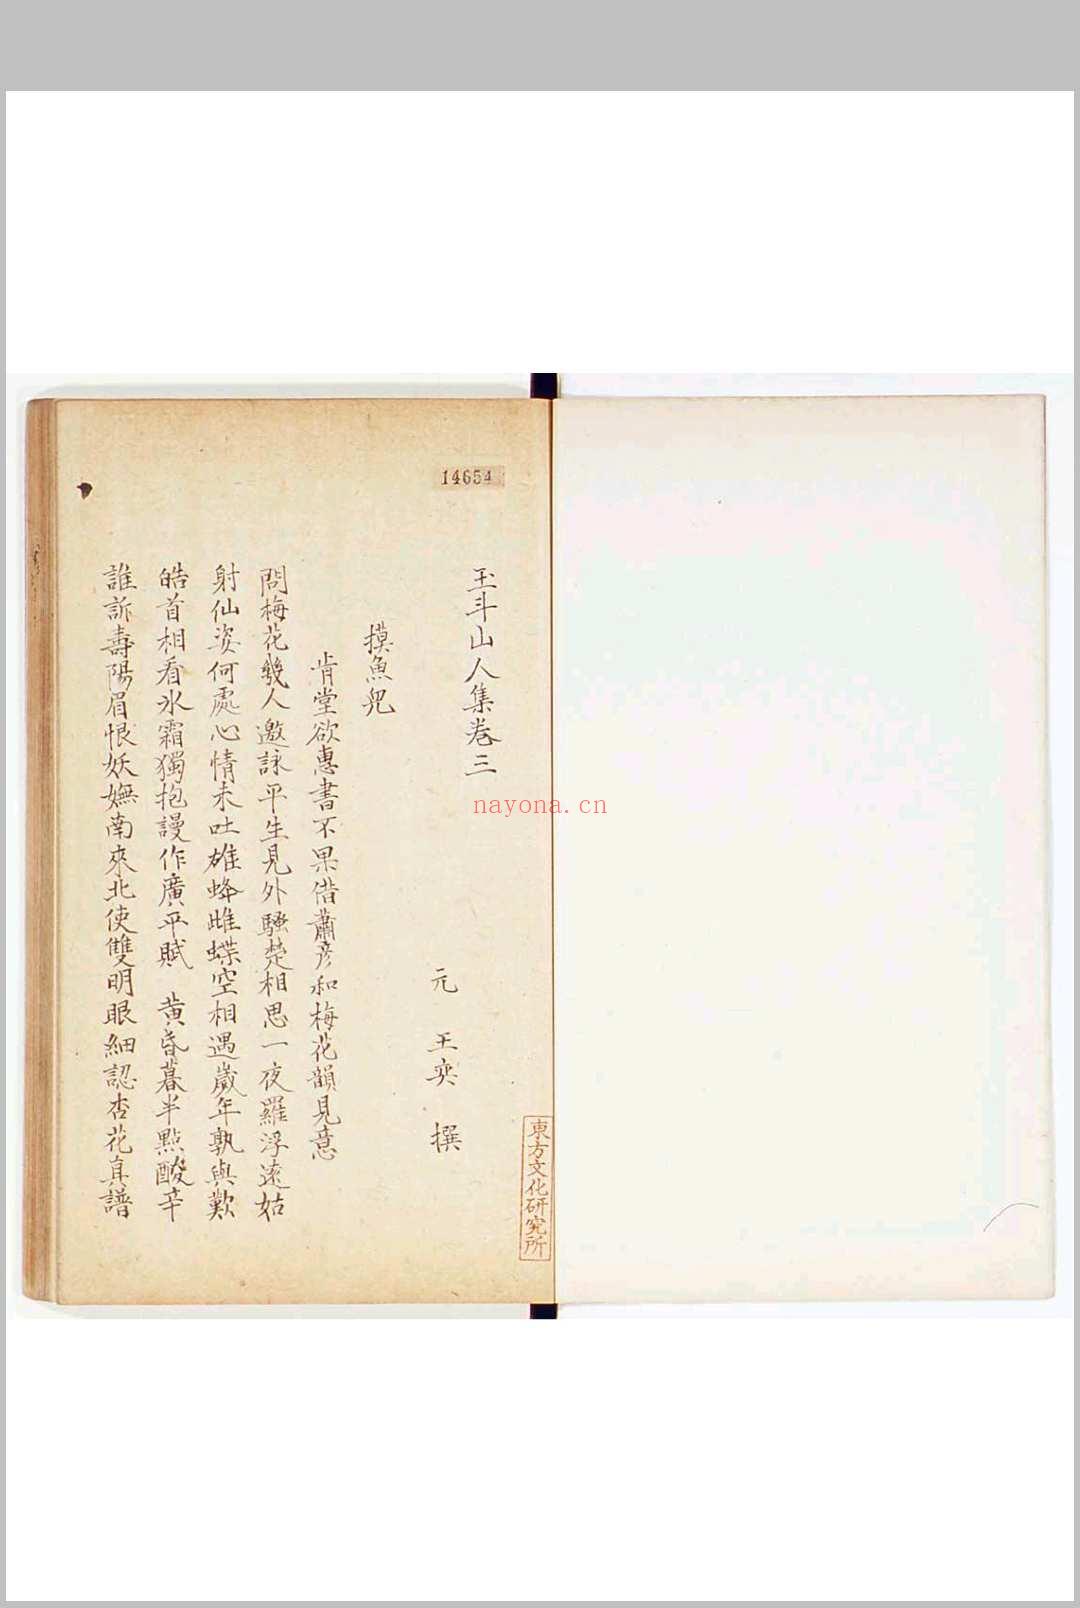 14654
玉斗山人集卷三
元 王奕 撰
摸魚兒
肯堂欲惠書不果借蕭彦和梅花韻見意
問梅花幾人邀詠平生見外騷楚相思一夜羅浮遠姑
射仙姿何處心情未吐雄蜂雌蝶空相遇歲年孰與歎
皓首相看氷霜獨抱謾作廣平賦 黄昏暮半點酸辛
誰訴壽陽眉恨妖嫵南來北使雙明眼細認杏花真譜
東方文化研究所
nayona.cn